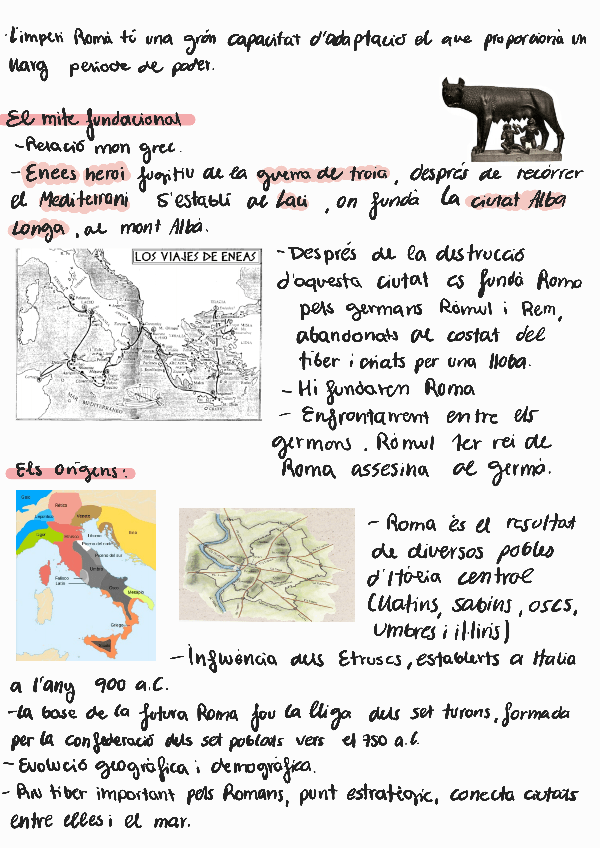 ·L'imperi Romà té una gran capacitat d'adaptació el que proporcionà un
llarg periode de poder.
El mite fundacional
-Relació mon grec.
-Enees heroi fugitiu de la guerra de troia, després de recórrer
el Mediterrani s'establí al Laci, on fundà la ciutat Alba
Longa, al mont Albà.
LOS VIAJES DE ENEAS
MAR MEDITERRÁNEO
-Després de la destrucció
d'aquesta ciutat es fundà Roma
pels germans Ròmul i Rem,
abandonats al costat del
tiber i criats per una lloba.
-Hi fundaren Roma
- Enfrontament entre els
germans. Ròmul 1er rei de
Roma assesina al germà.
Els orígens:
- Roma ès el resultat
de diversos pobles
d'Itàlia central
(Llatins, sabins, oscs,
Umbres i il·liris)
-Influència dels Etruscs, establerts a Italia
a l'any 900 a.C.
-La base de la futura Roma fou la lliga dels set turons, formada
per la confederació dels set poblats vers el 750 a.C.
-Evolució geogràfica i demogràfica.
-Riu tiber important pels Romans, punt estratègic, conecta ciutats
entre elles i el mar.